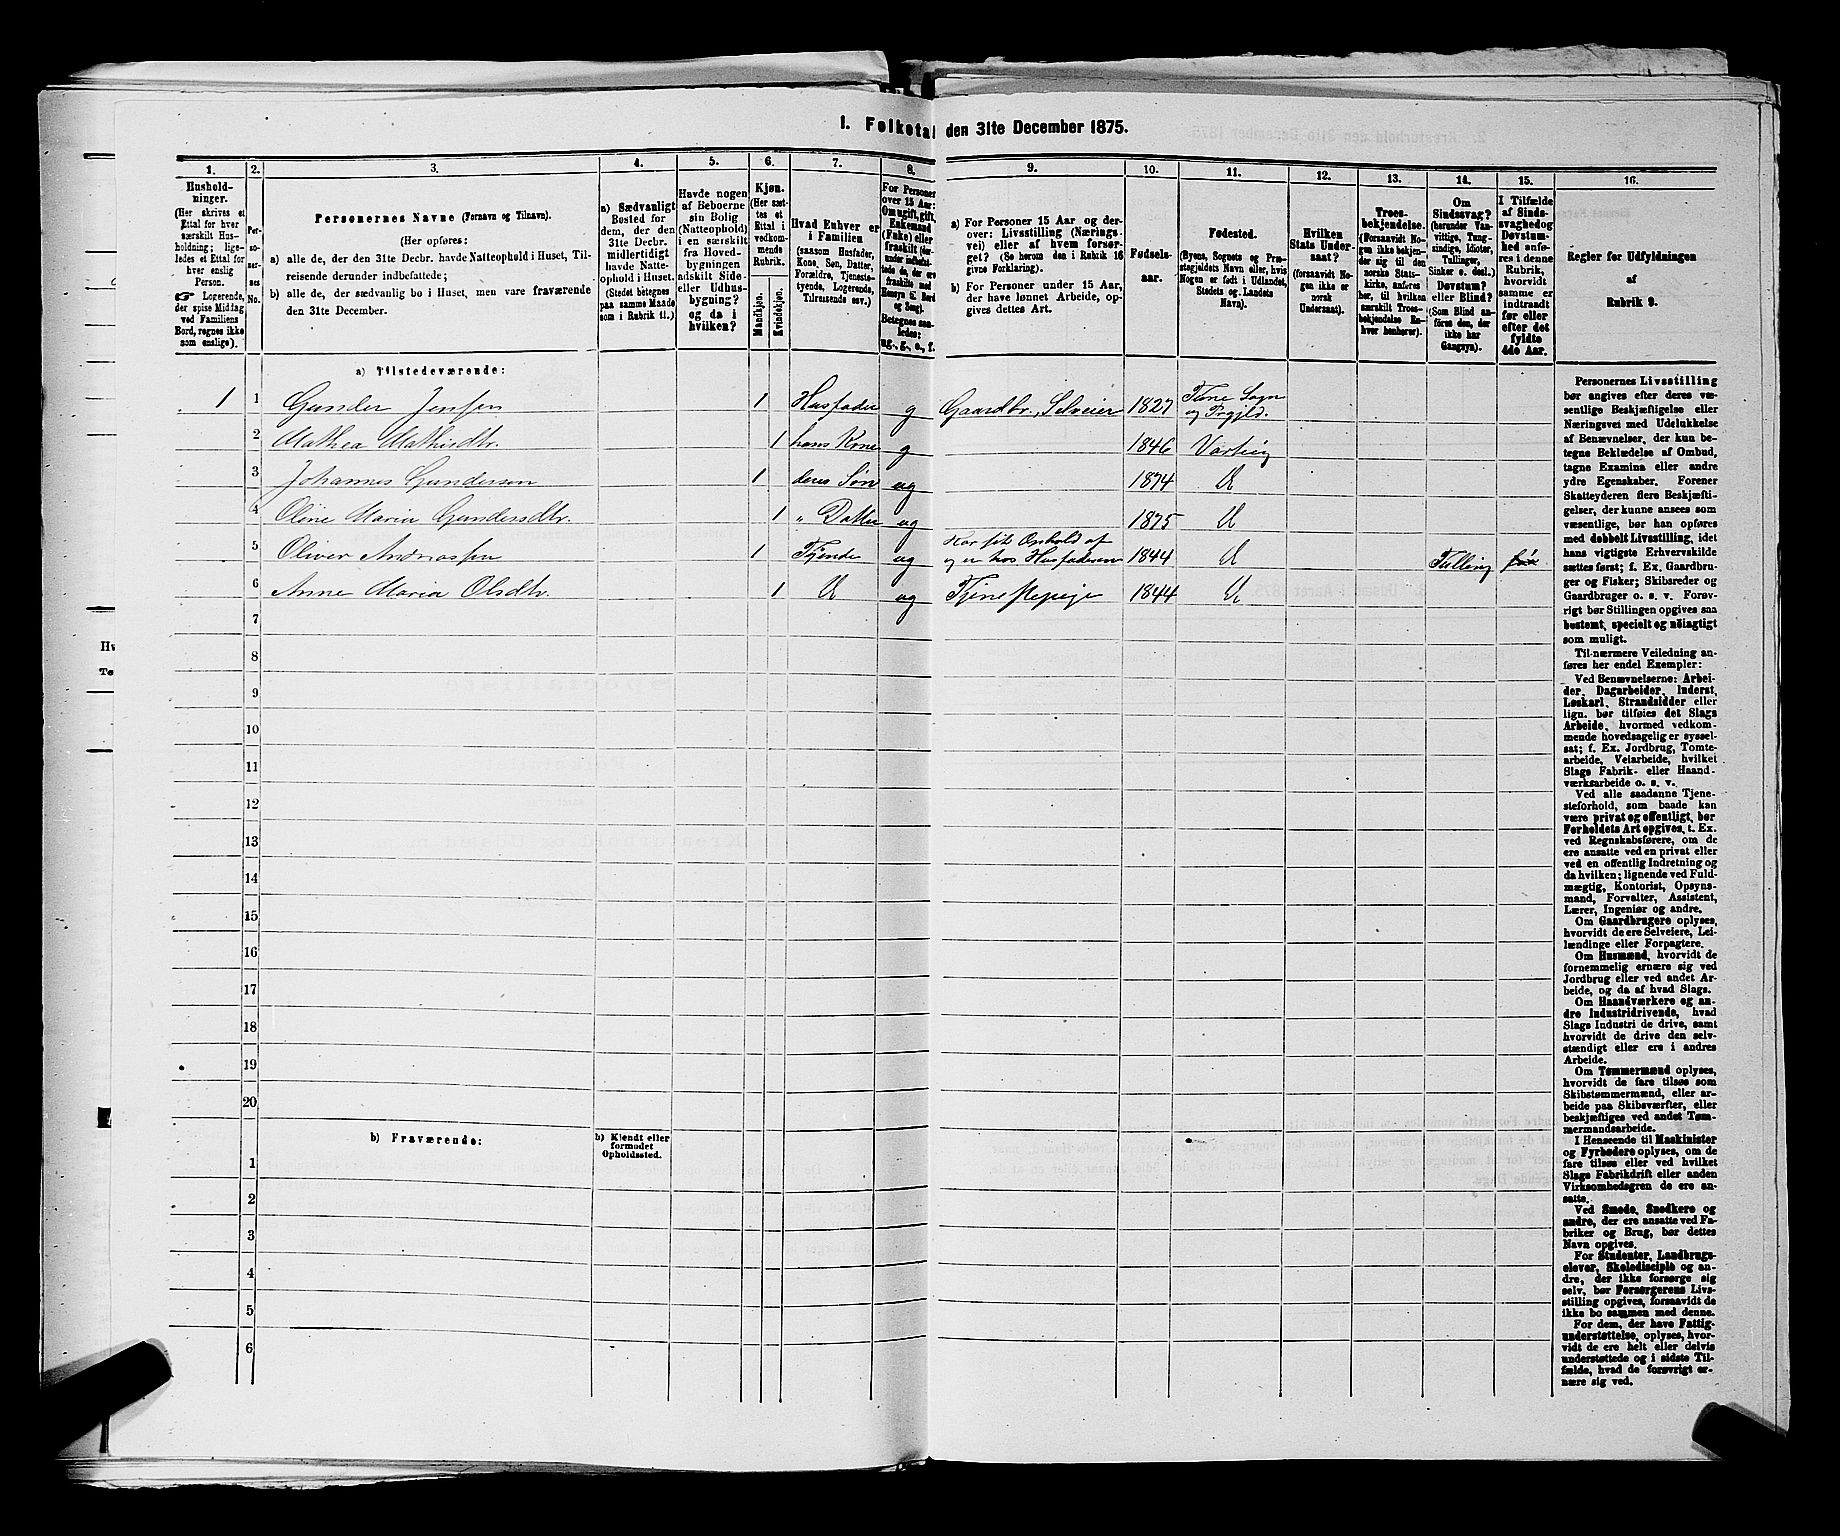 1. Folketal den 31te December 1875.
1.
2.
3.
4.
5.
6.
7.
8.
9.
10.
11.
12.
13.
14.
15.
16.
Hushold-
ninger.
(Her skrives et
Ettal for hver
særskilt Hus-
holdning; lige-
ledes et Ettal for
hver enslig
Person.
☞ Logerende,
der spise Middag
ved Familiens
Bord, regnes ikke
som enslige).
Per-
so-
ner-
nes
No.
Personernes Navne (Fornavn og Tilnavn).
(Her opføres:
a) alle de, der den 31te Decbr. havde Natteophold i Huset, Til-
reisende derunder indbefattede;
b) alle de, der sædvanlig bo i Huset, men vare fraværende
den 31te December.
a) Sædvanligt
Bosted for
dem, der den
31te Decbr.
midlertidigt
havde Natte-
ophold i Huset.
(Stedet betegnes
paa samme Maade
som i Rubrik 11.)
Havde nogen
af Beboerne
sin Bolig
(Natteophold)
i en særskilt
fra Hoved-
bygningen
adskilt Side-
eller Udhus-
bygning?
og da i
hvilken?
Kjøn.
(Her sæt-
tes et
Ettal i
vedkom-
mende
Rubrik.
Mandkjøn.
Kvindekjøn.
Hvad Enhver er
i Familien
(saasom Husfader,
Kone, Søn, Datter,
Forældre, Tjeneste-
tyende, Logerende,
Tilreisende osv.)
For Personer
over 15 Aar:
Om ugift, gift,
Enkemand
(Enke) eller
fraskilt (der-
under indbefat-
tede de, der ere
fraskilte med
Hensyn til Bord
og Seng).
Betegnes saa-
ledes:
ug., g., e., f.
a) For Personer 15 Aar og der-
over: Livsstilling (Nærings-
vei) eller af hvem forsør-
get? (Se herom den i Rubrik 16
givne Forklaring).
b) For Personer under 15 Aar,
der have lønnet Arbeide, op-
gives dettes Art.
Fødsels-
aar.
Fødested.
(Byens, Sognets og Præ-
stegjeldets Navn eller, hvis
Nogen er født i Udlandet,
Stedets og Landets
Navn).
Hvilken
Stats Under-
saat?
(forsaavidt No-
gen ikke er
norsk
Undersaat).
Troes-
bekjendelse.
(Forsaavidt No-
gen ikke bekjen-
der sig til den
norske Stats-
kirke, anføres
her, til hvilken
særskilt Troes-
bekjendelse En-
hver henhører).
Om
Sindssvag?
(herunder Van-
vittige, Tung-
sindige, Idioter,
Tullinger,
Sinker o. desl.)
Døvstum?
eller Blind?
(Som Blind an-
føres den, der
ikke har
Gangsyn).
I Tilfælde
af Sinds-
svaghed og
Døvstum-
hed anfø-
res i denne
Rubrik,
hvorvidt
samme er
indtraadt
før eller
efter det
fyldte
4de Aar.
Regler for Udfyldningen
af
Rubrik 9.
a) Tilstedeværende:
1 1 Gunder Jensen 1 Husfader g Gaardbr., Selveier 1827 Tune Sogn
og Prgjld.
2 Mathea Mathisdtr. 1 hans Kone g 1846 Varteig
3 Johannes Gundersen 1 deres Søn ug 1874 U
4 Oline Maria Gundersdtr. 1 " Datter ug 1875 U
5 Oliver Andreassen 1 Tjende ug Har sit Ophold af
og er hos Husfaderen 1844 U Tulling før
6 Anne Maria Olsdtr. 1 U ug Tjenestepige 1844 U
7
8
9
10
11
12
13
14
15
16
17
18
19
20
b) Fraværende:
b) Kjendt eller
formodet
Opholdssted.
1
2
3
4
5
6
Personernes Livsstilling
bør angives efter deres væ-
sentlige Beskjæftigelse eller
Næringsvei med Udelukkelse
af Benævnelser, der kun be-
tegne Beklædelse af Ombud,
tagne Examina eller andre
ydre Egenskaber. Forener
Skatteyderen flere Beskjæfti-
gelser, der kunne ansees som
væsentlige, bør han opføres
med dobbelt Livsstilling, idet
hans vigtigste Erhvervskilde
sættes først; f. Ex. Gaardbru-
ger og Fisker; Skibsreder og
Gaardbruger o. s. v. Forøv-
rigt bør Stillingen opgives saa
bestemt, specielt og nøiagtigt
som muligt.
Til nærmere Veiledning an-
føres her endel Exempler:
Ved Benævnelserne: Arbei-
der, Dagarbeider, Inderst,
Løskarl, Strandsidder eller
lign. bør tilføies det Slags
Arbeide, hvormed vedkom-
mende hovedsagelig er syssel-
sat; f. Ex. Jordbrug, Tomte-
arbeide, Veiarbeide, hvilket
Slags Fabrik- eller Haand-
værksarbeide o. s. v.
Ved alle saadanne Tjene-
steforhold, som baade kan
være privat og offentligt, bør
Forholdets Art opgives, t. Ex.
ved Regnskabsførere, om de
ere ansatte ved en privat eller
ved en offentlig Indretning og
da hvilken; lignende ved Fuld-
mægtig, Kontorist, Opsyns-
mand, Forvalter, Assistent,
Lærer, Ingeniør og andre.
Om Gaardbrugere oplyses,
hvorvidt de ere Selveiere, Lei-
lændinge eller Forpagtere.
Om Husmænd, hvorvidt de
fornemmelig ernære sig ved
Jordbrug eller ved andet Ar-
beide, og da af hvad Slags.
Om Haandværkere og an-
dre Industridrivende, hvad
Slags Industri de drive, samt
hvorvidt de drive den selv-
stændigt eller ere i andres
Arbeide.
Om Tømmermænd oplyses,
hvorvidt de fare tilsøs som
Skibstømmermænd, eller ar-
beide paa Skibsværfter, eller
beskjæftiges ved andet Tøm-
mermandsarbeide.
I Henseende til Maskinister
og Fyrbødere oplyses, om de
fare tilsøs eller ved hvilket
Slags Fabrikdrift eller anden
Virksomhedsgren de ere an-
satte.
Ved Smede, Snedkere og
andre, der ere ansatte ved Fa-
briker og Brug, bør dettes
Navn opgives.
For Studenter, Landbrugs-
elever, Skoledisciple og an-
dre, der ikke forsørge sig
selv, bør Forsørgerens Livs-
stilling opgives, forsaavidt de
ikke bo sammen med denne.
For dem, der have Fattig-
understøttelse, oplyses, hvor-
vidt de ere helt eller delvis
understøttede og i sidste Til-
fælde, hvad de forøvrigt er-
nære sig ved.